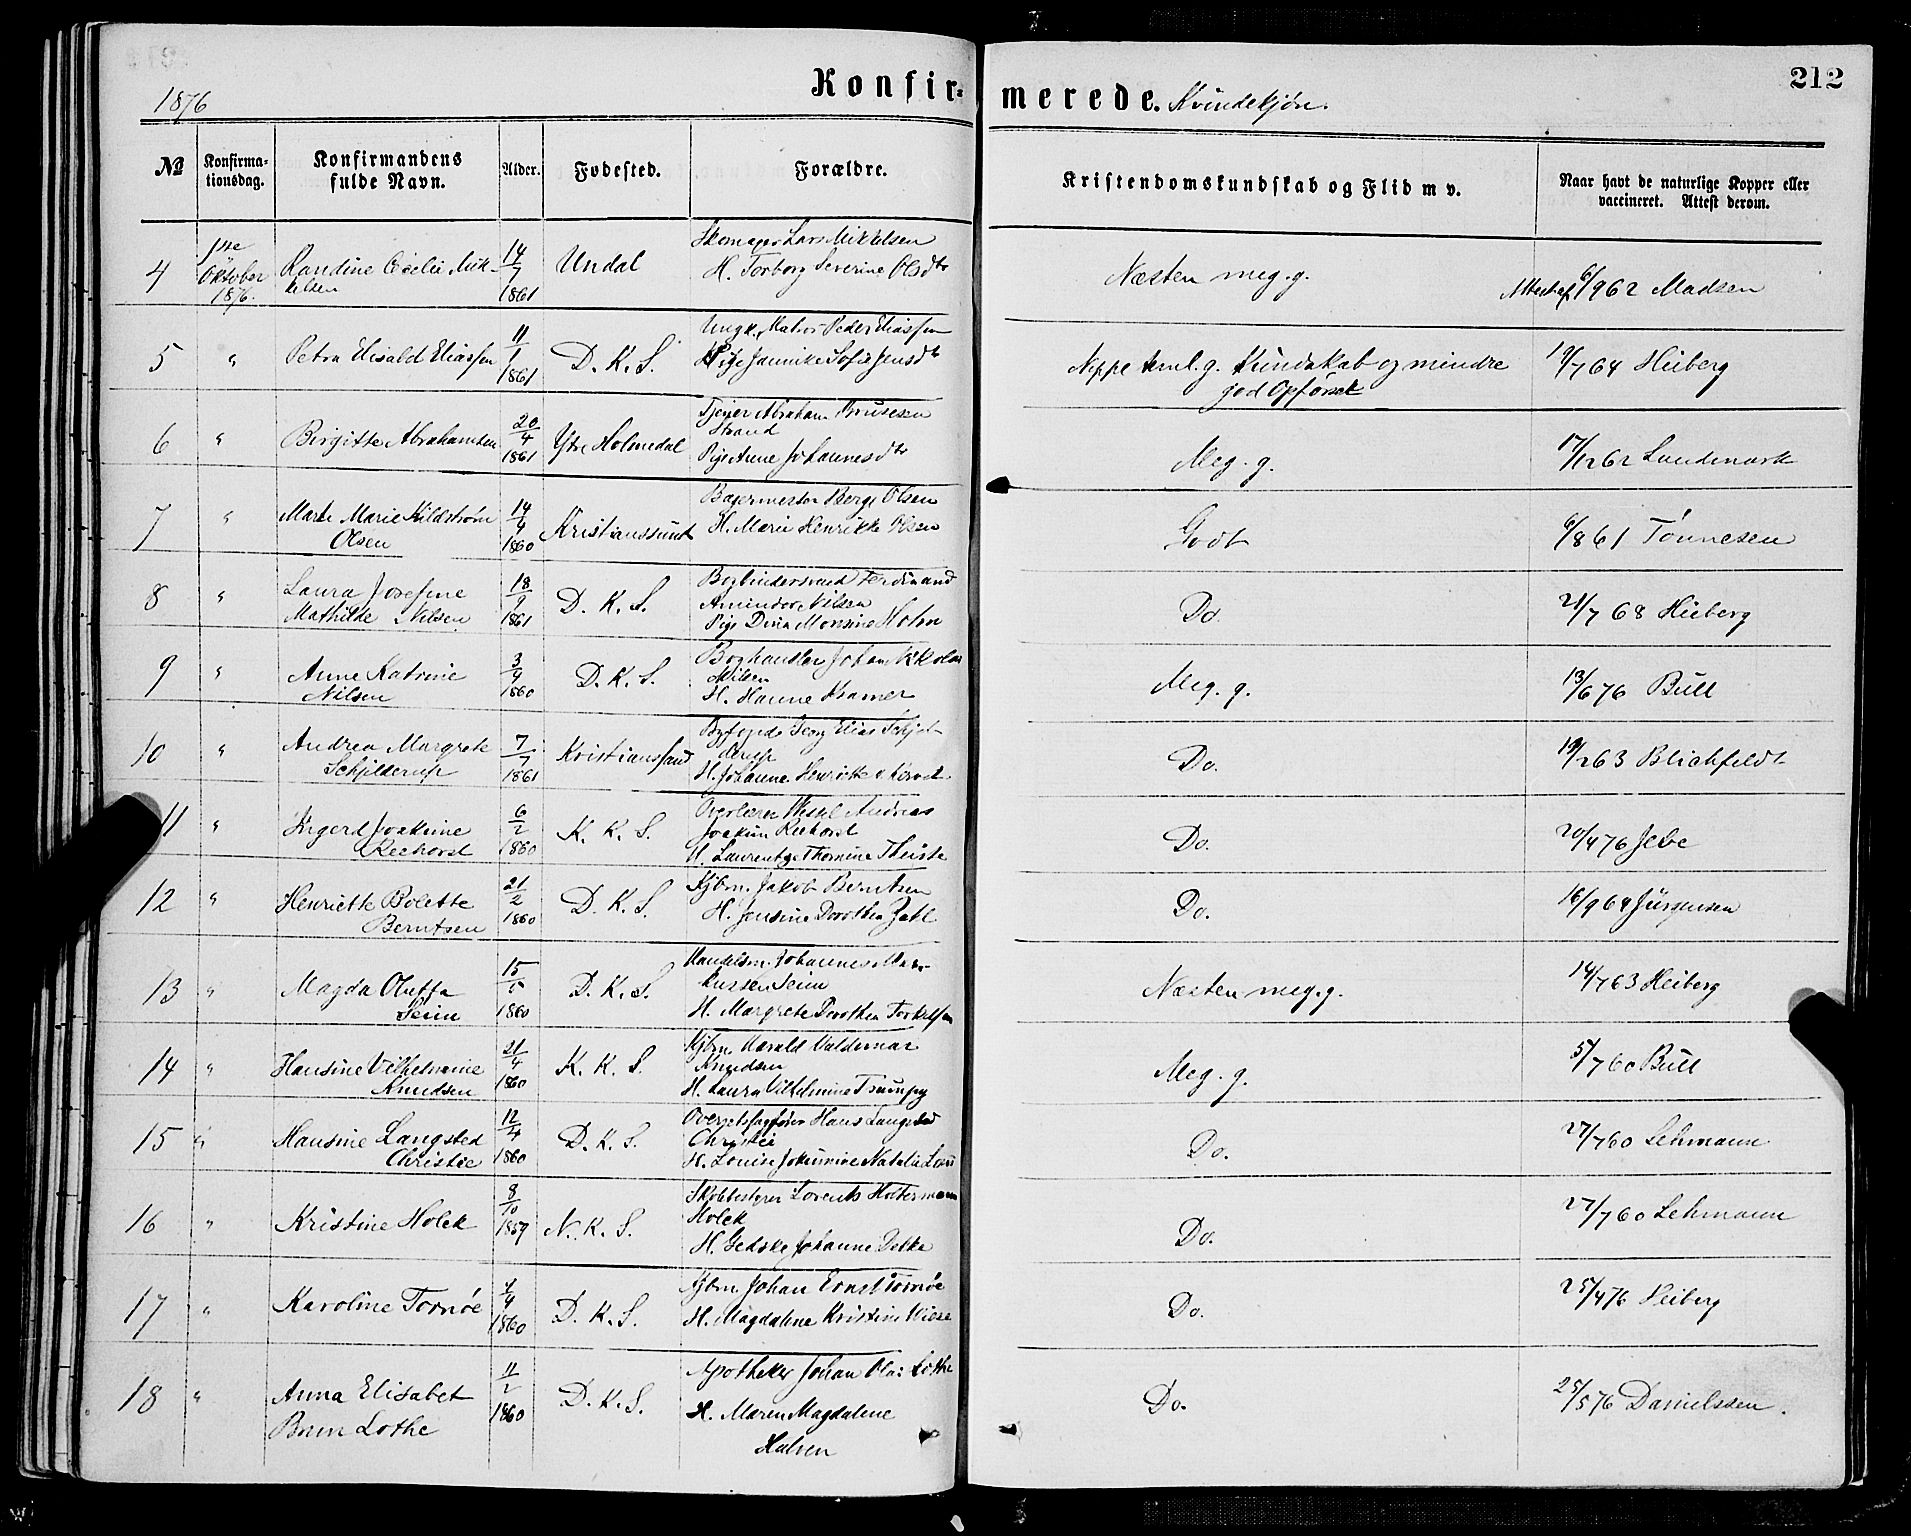 212
1876 Konfirmerede. Kvindekjøn.
№ Konfirmationsdag. Konfirmandens fulde Navn. Alder. Fødested. Forældre. Kristendomskundskab og Flid m v. Naar havt de naturlige Kopper eller vaccineret. Attest derom.
4 1ste Oktober 1876. Randine Mikkelsen 14/7 1861 Undal Skomager Lars Mikkelsen
H. Torborg Severine Olsdtr Næsten meg. g. 6/9 62 Madsen
5 " Petra Eliassen 11/1 1861 D. K. S. Ungk. Matros Peder Eliassen
Pige Jannike Sofie Jensdtr Neppe teml. g. Kundskab og mindre god Opførsel 19/7 64 Heiberg
6 " Birgitte Abrahamsen 20/4 1861 Ytre Holmedal Abraham
Strand
Pige Anne Johannesdtr Meg. g. 17/12 62 Landmark
7 " Marie Kildstrøm
Olsen 14/9 1860 Kristianssund Berge Olsen
H. Marie Henrikke Olsen Godt 6/8 61 Tønnesen
8 " Laura Josefine
Mathilde Nilsen 18/9 1861 D. K. S. Bogbindersvend Ferdinand
Amindor Nilsen
Pige Dina Monsine Holm Do. 21/7 68 Heiberg
9 " Anne Katrine
Nilsen 3/9 1860 D. K. S. Boghandler Johan
Nilsen
H. Hanne Kramer Meg. g. 13/6 76 Bull
10 " Andrea Margrete
Schjelderup 7/7 1861 Kristianssand Byfoged Georg Elias Schjelderup
H. Johanne Henriette Do. 19/2 63 Blichfeldt
11 " Ingerd Joakime
Reehorst 6/2 1860 K. K. S. Overlærer Andreas
Joakim Reehorst
H. Laurentze Thomine Theiste Do. 20/4 76 Jebe
12 " Henriette Bolette
Berntsen 21/2 1860 D. K. S. Kjbm. Jakob Berntsen
H. Jensine Dorothea Zahl Do. 16/9 64 Jürgensen
13 " Magda Oluffa
Seim 15/5 1860 D. K. S. Handelsm. Johannes Markussen Seim
H. Margrete Dorothea Torkelsen Næsten meg. g. 14/7 63 Heiberg
14 " Hansine Vilhelmine
Knudsen 21/4 1860 K. K. S. Kjbm. Harald Valdemar
Knudsen
H. Laura Vilhelmine Trumpy Meg. g. 5/7 60 Bull
15 " Hansine Langsted
Christie 12/4 1860 D. K. S. Overretssagfører Hans Langsted
Christie
H. Louise Natalia Do. 27/7 60 Lehmann
16 " Kristine Holck 8/10 1859 N. K. S. Skolebestyrer Lorents Holtermann
Holck
H. Gedske Johanne Do. 27/7 60 Lehmann
17 " Karoline Tornøe 4/4 1860 D. K. S. Kjbm. Johan Ernst Tornøe
H. Magdalene Kristine Wiese Do. 25/4 76 Heiberg
18 " Anna Elisabet
Brun Lothe 11/2 1860 D. K. S. Apotheker Johan Olai Lothe
H. Maren Magdalene
Halsen Do. 25/5 76 Danielssen.